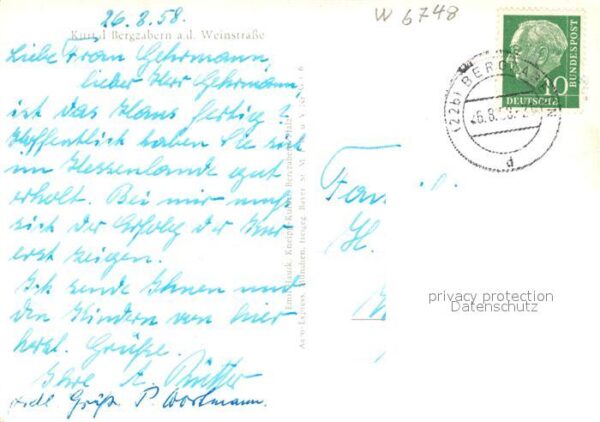 26.8.58.
W 6748
Kurtal Bergzabern a.d. Weinstraße
Liebe Frau Gehrmann,
lieber Herr Gehrmann,
ist das Haus fertig?
Hoffentlich haben Sie sich
im Hessenlande gut
erholt. Bei mir muß
sich der Erfolg der Kur
erst zeigen.
Ich sende Ihnen und
den Kindern von hier
herzl. Grüße.
Ihre A.
frdl. Grüße P. Wortmann.
DEUTSCHE
BUNDESPOST
10
(22b) BERGZABERN
26.8.58
d
Fam
H.
privacy protection
Datenschutz